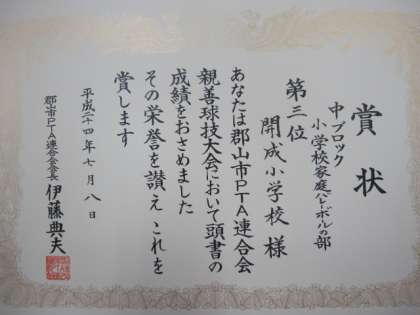 賞状
中ブロック
小学校家庭バレーボールの部
第三位
開成小学校様
あなたは郡山市PTA連合会
親善球技大会において頭書の
成績をおさめました
その栄誉を讃えこれを
賞します
平成二十四年七月八日
郡山市PTA連合会会長 伊藤典夫